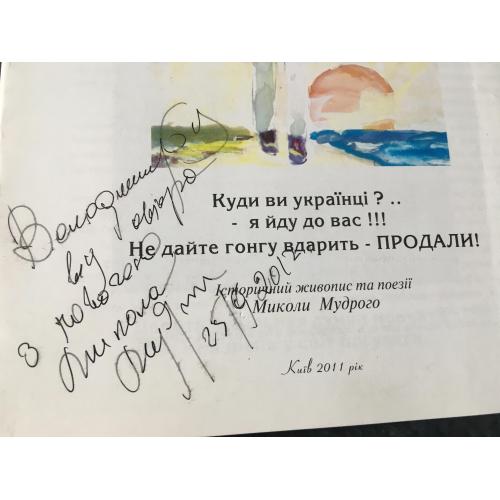 Куди ви українці ? ..
- я йду до вас !!!
Не дайте гонгу вдарить - ПРОДАЛИ!
Історичний живопис та поезії
Миколи Мудрого
Київ 2011 рік
Володимиру
від автора
з повагою
Микола